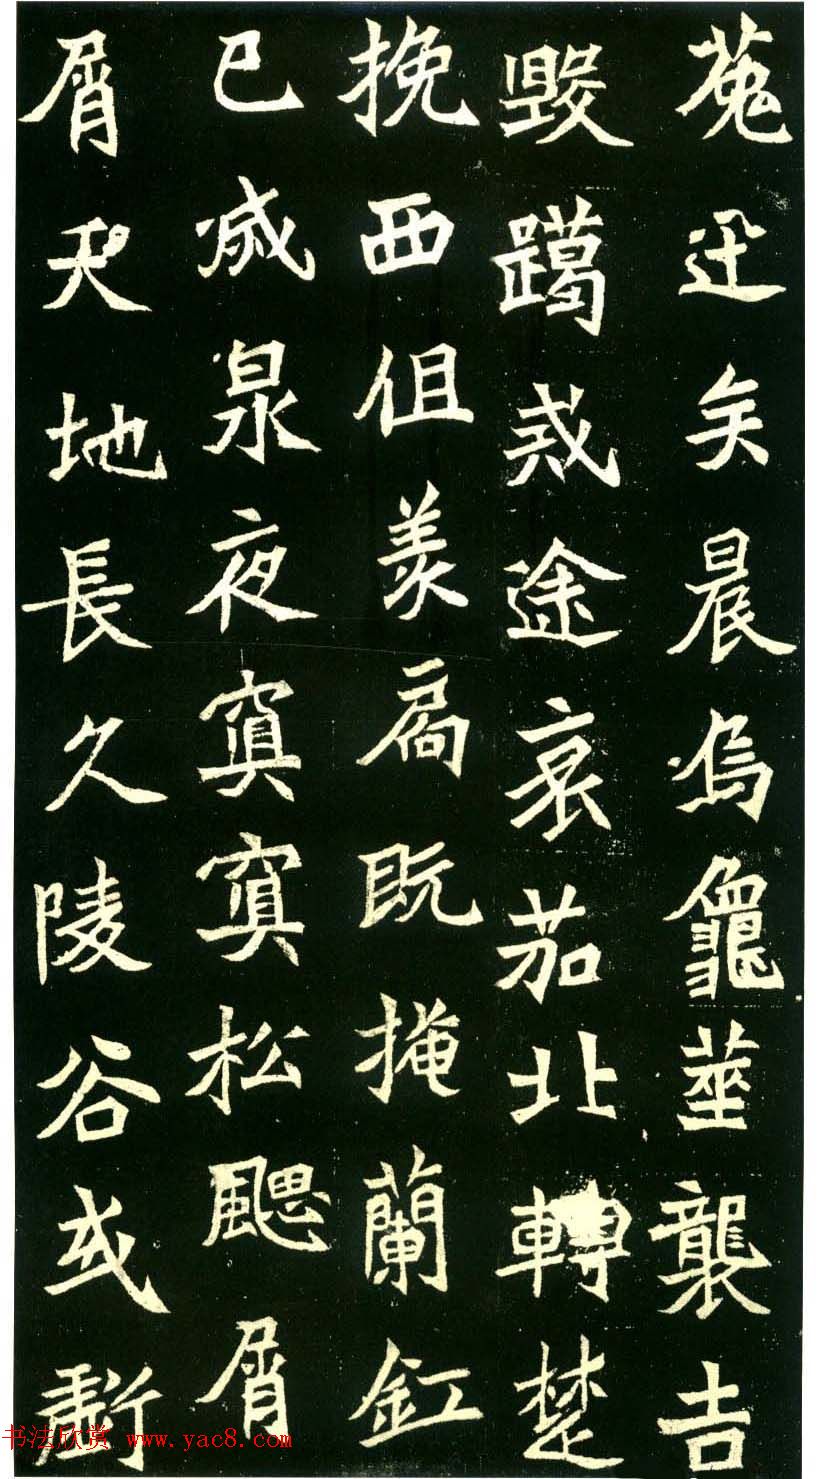 菟迅矣晨烏龜筮襲吉
毀躅戒途哀茄北轉楚
挽西徂羨扃既掩蘭釭
已滅泉夜寘寘松颸屑
屑天地長久陵谷或虧
书法欣赏 www.yac8.com